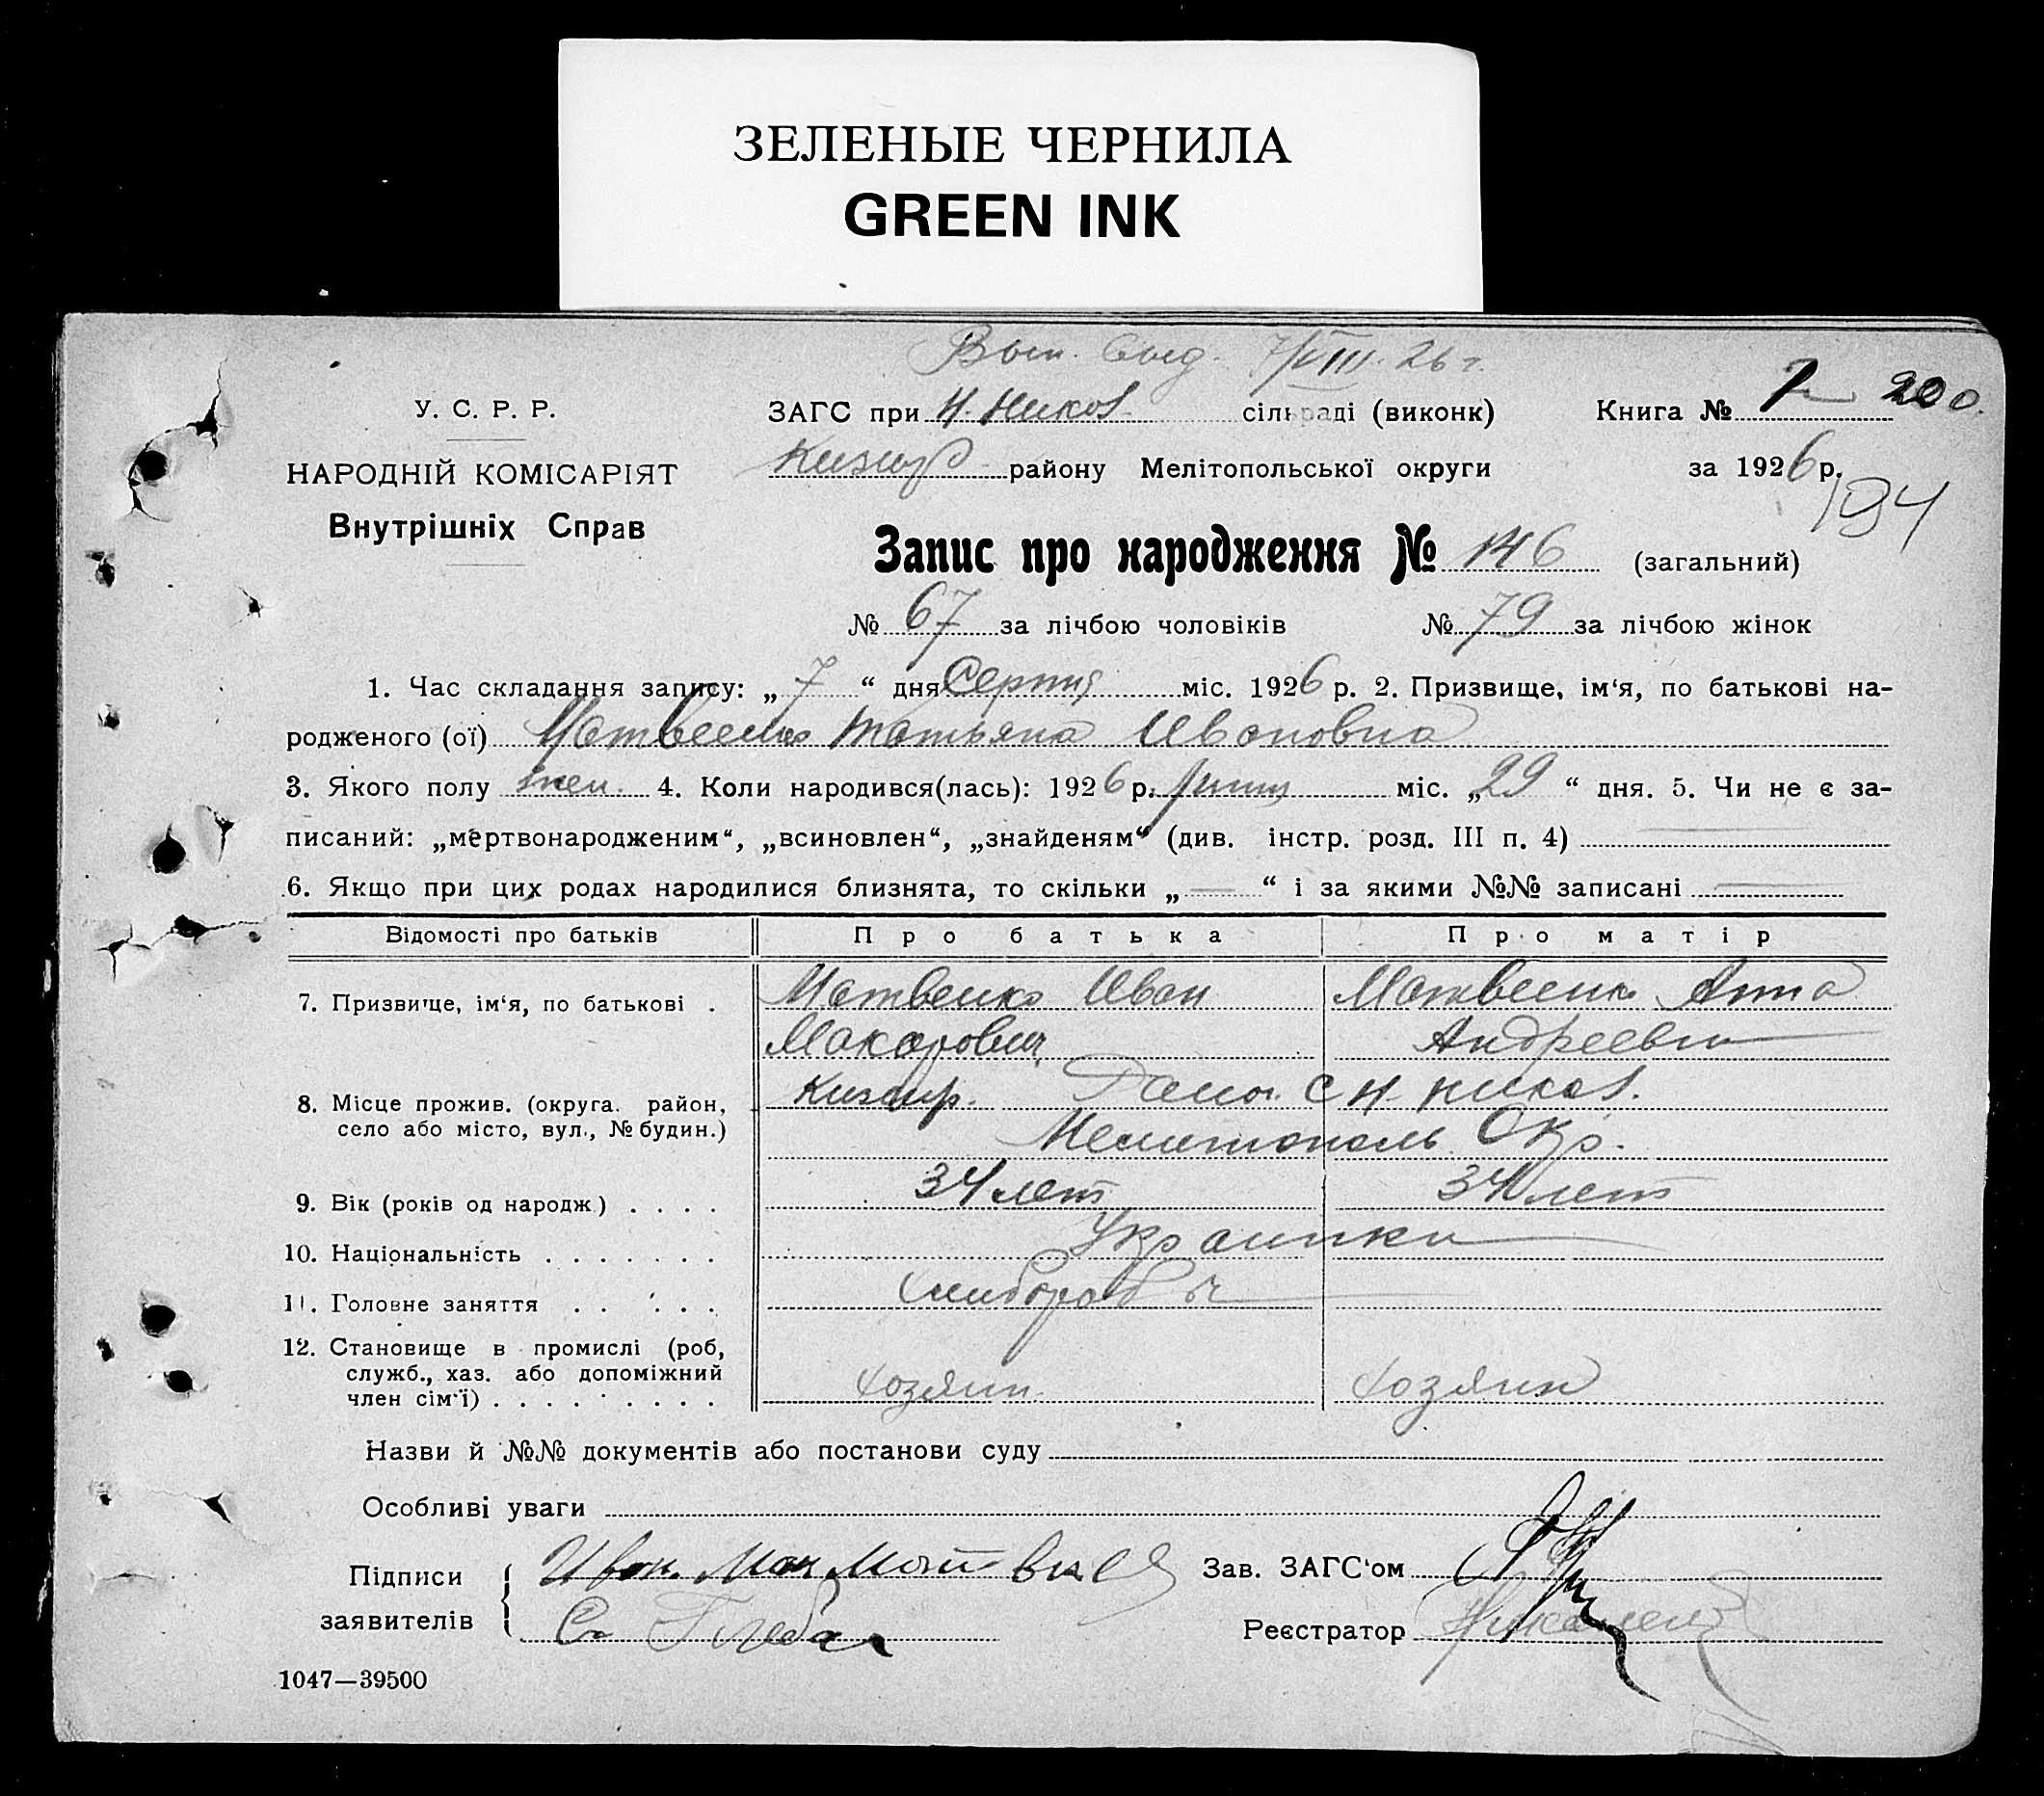 ЗЕЛЕНЫЕ ЧЕРНИЛА
GREEN INK
7/VIII. 26 г.
У. С. Р. Р.
ЗАГС при Н. Никол. сільраді (виконк)
Книга № 200.
НАРОДНІЙ КОМІСАРІЯТ
району Мелітопольської округи
за 1926 р.
194
Внутрішніх Справ
Запис про народження № 146 (загальний)
№ 67 за лічбою чоловіків № 79 за лічбою жінок
1. Час складання запису: „ 7 “ дня Серпня міс. 1926 р. 2. Призвище, ім‘я, по батькові на-
родженого (ої) Матвеенко Татьяна Ивановна
3. Якого полу жен. 4. Коли народився(лась): 1926 р. міс. „ 29 “ дня. 5. Чи не є за-
писаний: „мертвонародженим“, „всиновлен“, „знайденям“ (див. інстр. розд. III п. 4)
6. Якщо при цих родах народилися близнята, то скільки „ — “ і за якими №№ записані —
Відомості про батьків
Про батька
Про матір
7. Призвище, ім‘я, по батькові .
Матвеенко Иван
Макарович
Матвеенко Анна
Андреевна
8. Місце прожив. (округа. район,
село або місто, вул., № будин.)
Кизияр. с Н. Никол.
Мелитополь Окр.
9. Вік (років од народж) . . . .
34 лет
34 лет
10. Національність . . . . . . .
Украинки
11. Головне заняття . . . . .
Хлибороб
12. Становище в промислі (роб,
служб., хаз. або допоміжний
член сім‘ї) . . . . . . . . .
хозяин
хозяин
Назви й №№ документів або постанови суду
Особливі уваги
Підписи
заявителів
Иван
Глеба
Зав. ЗАГС‘ом
Реєстратор
1047—39500